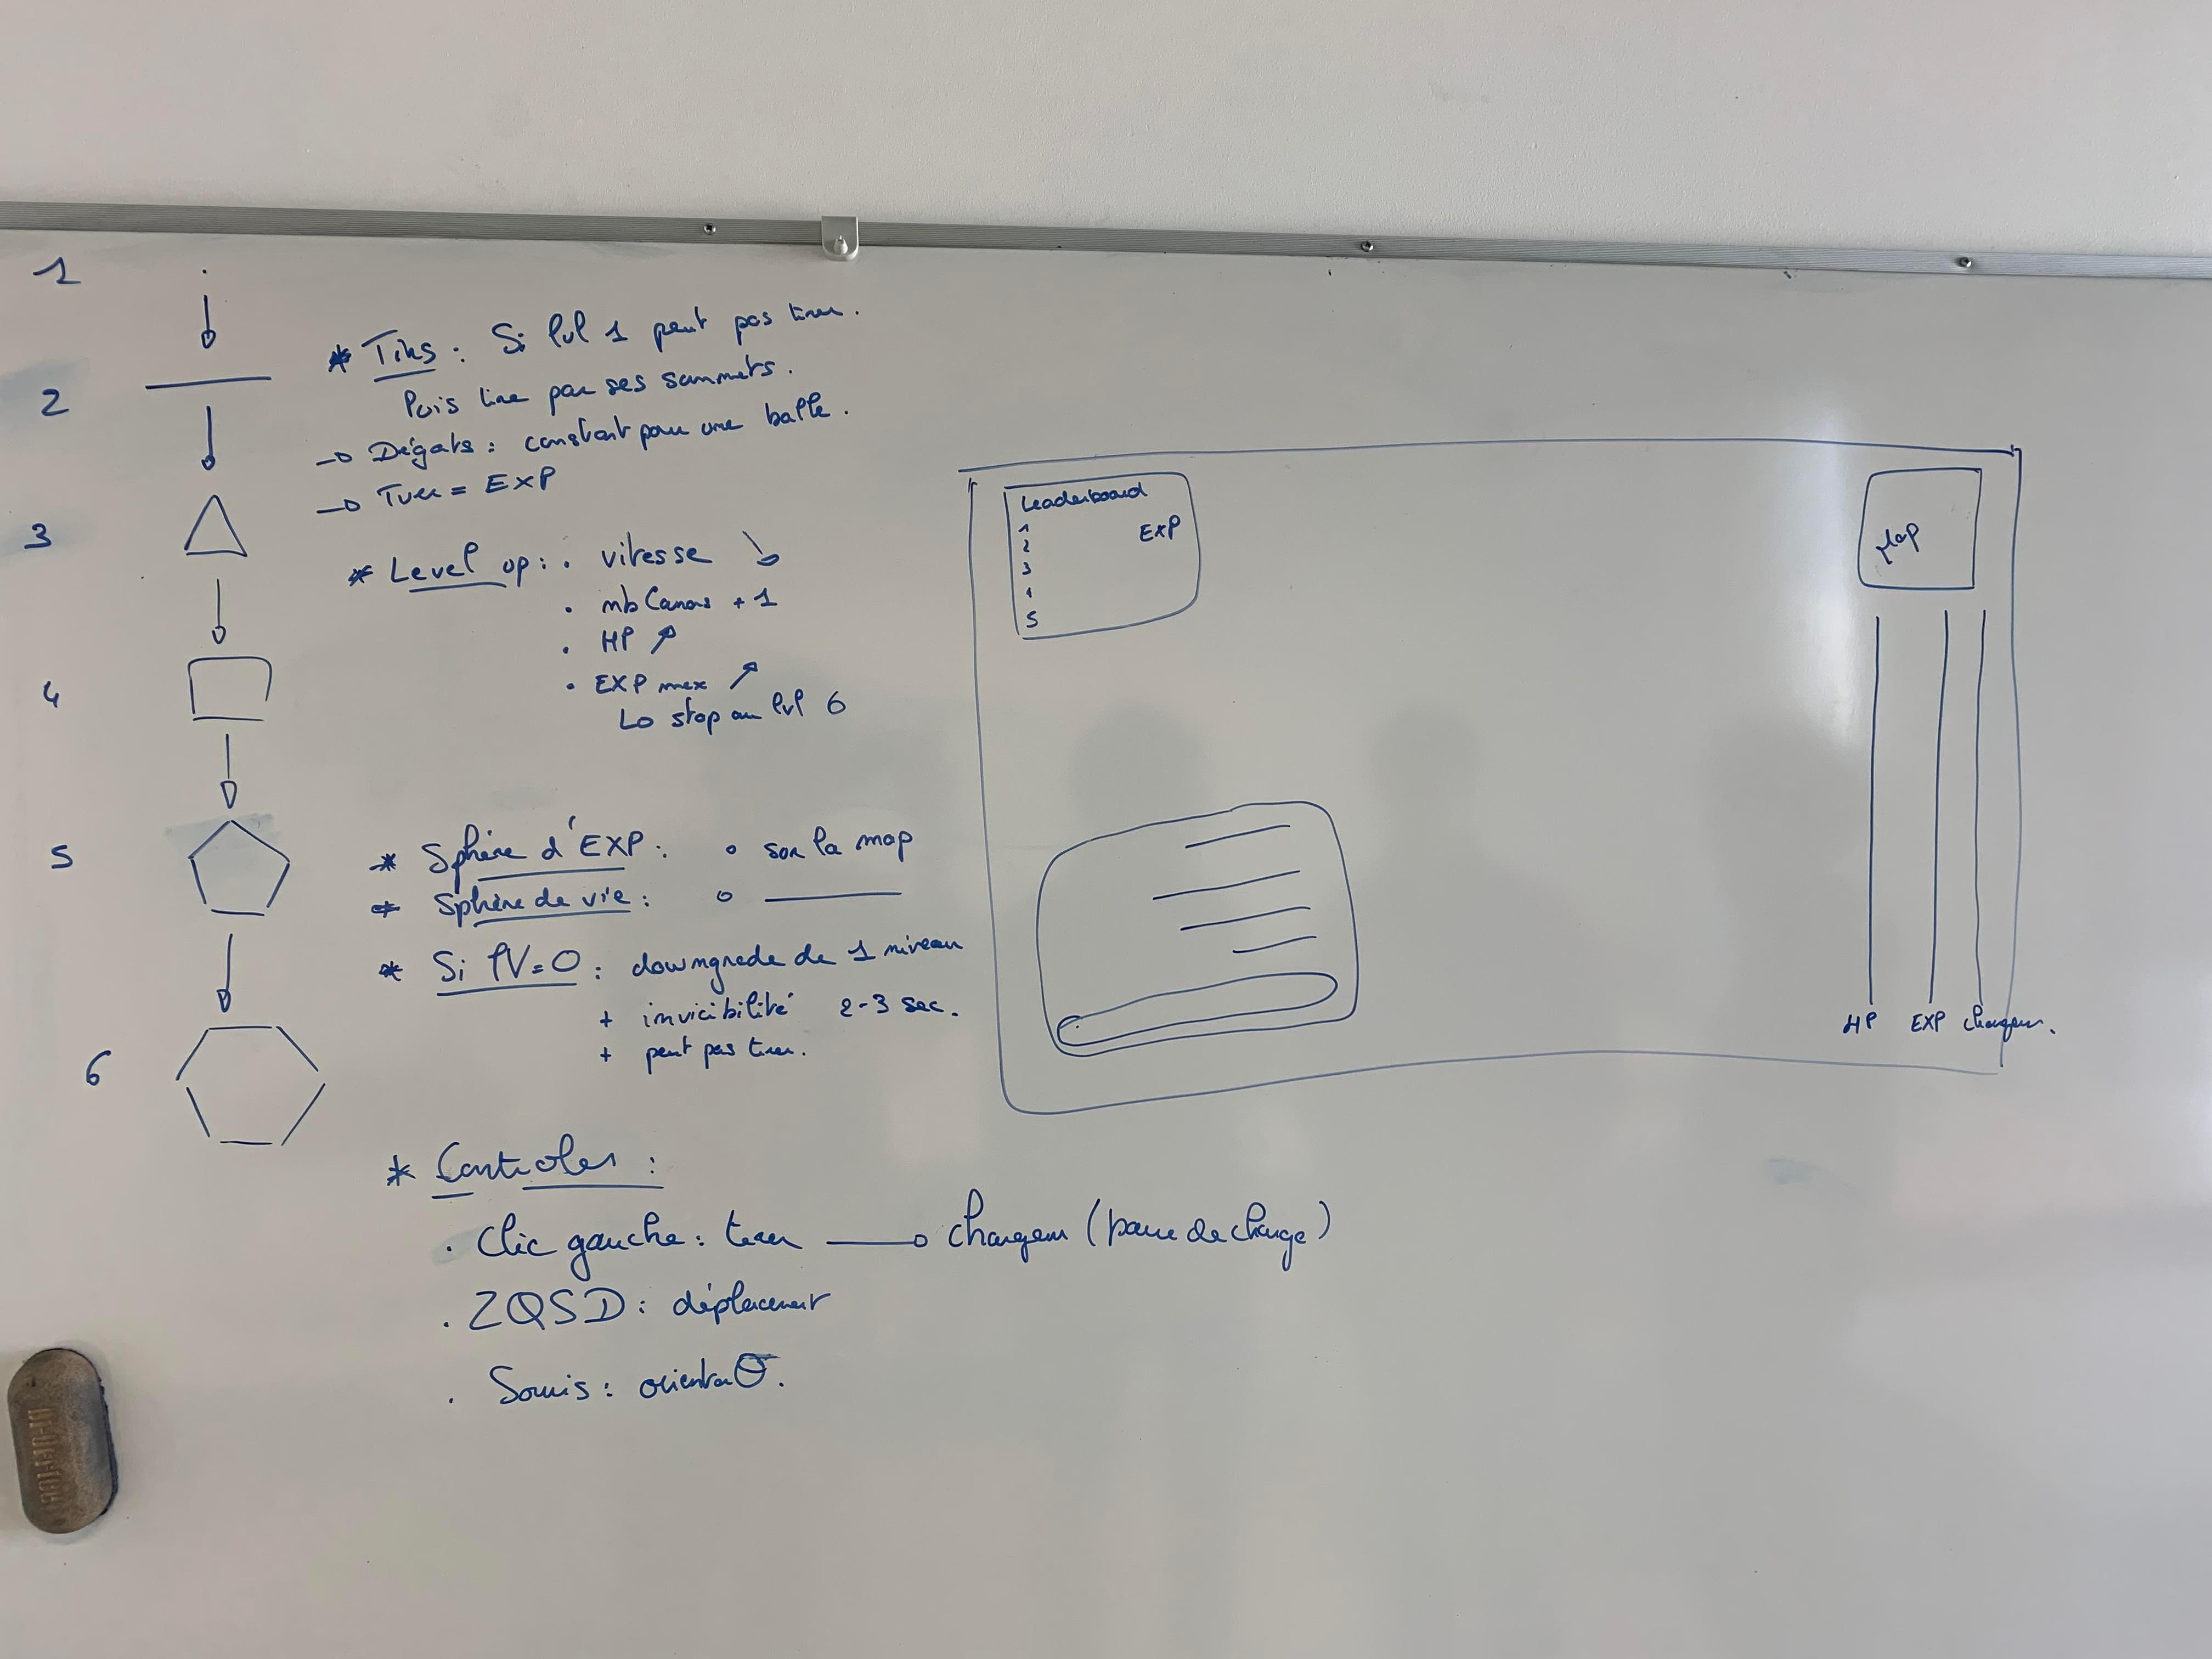 1
2
3
4
5
6
* Tirs : Si lvl 1 peut pas tirer.
Puis tire par ses sommets.
→ Dégats : constant pour une balle.
→ Tuer = EXP
* Level up : . vitesse ↘
. nb Canons + 1
. HP ↗
. EXP max ↗
↳ stop au lvl 6
* Sphère d'EXP : o sur la map
* Sphère de vie : o ———
* Si PV = 0 : downgrade de 1 niveau
+ invicibilité 2-3 sec.
+ peut pas tirer.
* Controles :
. Clic gauche : tirer → chargeur (barre de charge)
. ZQSD : déplacement
. Souris : orientaθ.
Leaderboard
1 EXP
2
3
4
5
Map
HP EXP chargeur.